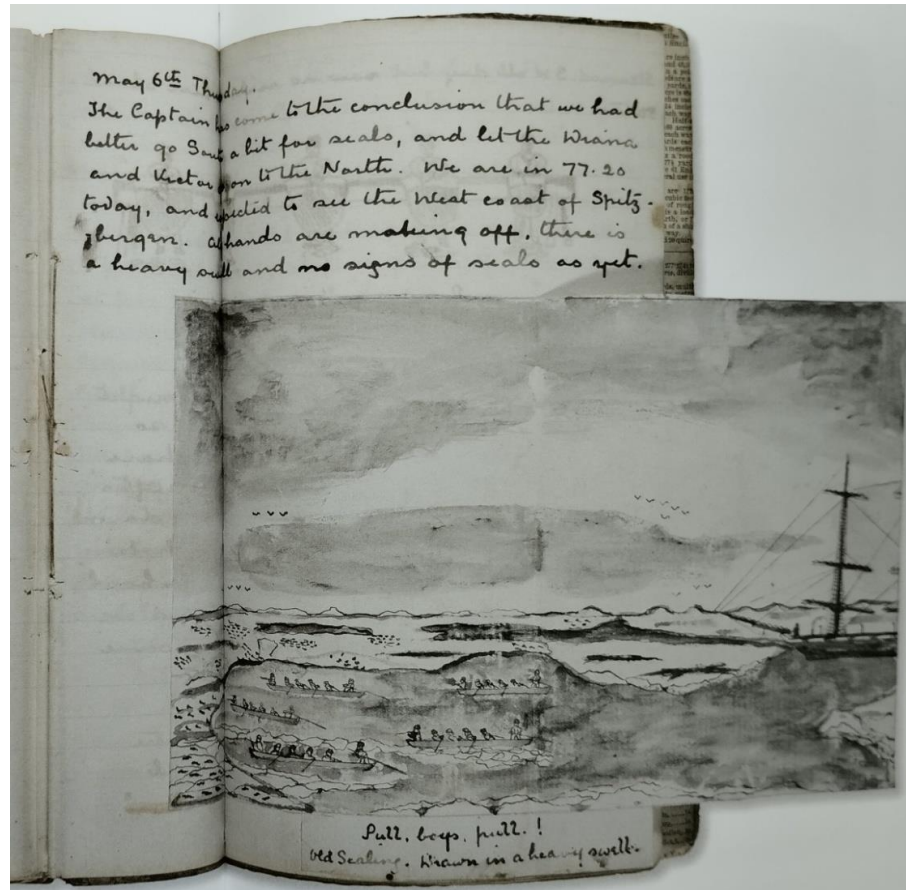 May 6th Thursday.
The Captain has come to the conclusion that we had
better go South a bit for seals, and let the Diana
and Victor go on to the North. We are in 77.20
today, and expected to see the West coast of Spitz-
zbergen. All hands are making off, there is
a heavy swell and no signs of seals as yet.
Pull, boys, pull.!
Old Sealing. Drawn in a heavy swell.